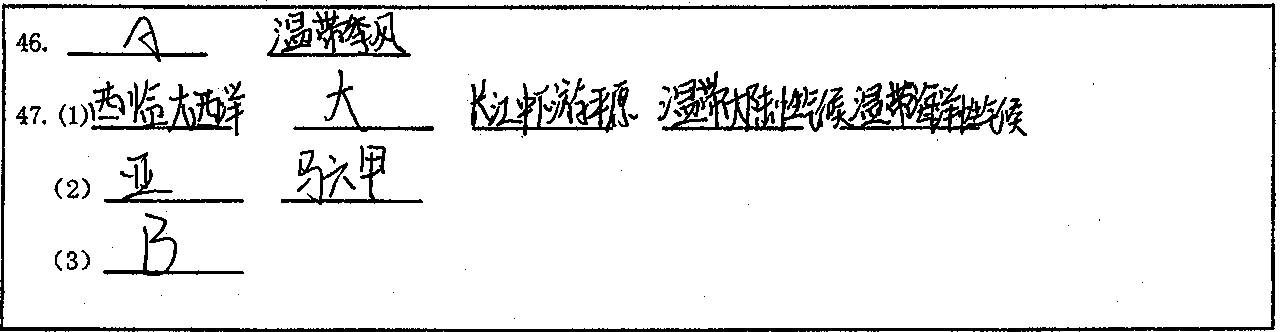 46. A 温带季风
47. (1) 西临大西洋 大 长江中下游平原 温带大陆性气候 温带海洋性气候
(2) 亚 马六甲
(3) B